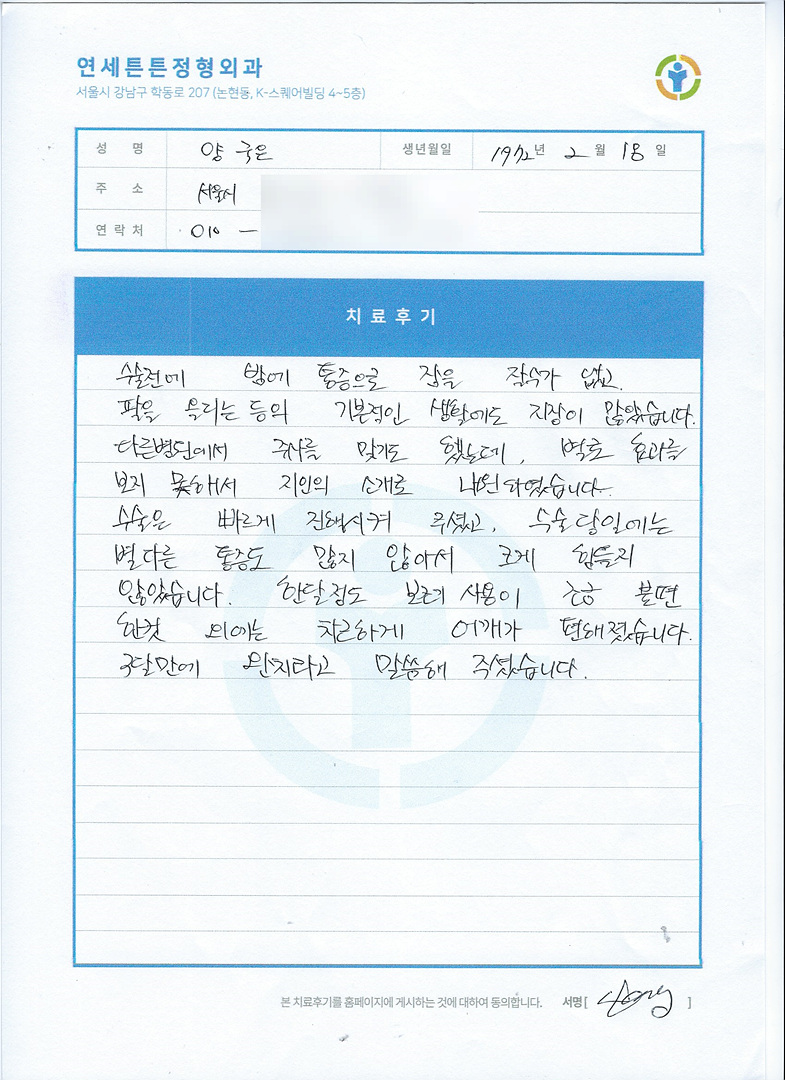 연세튼튼정형외과
서울시 강남구 학동로 207 (논현동, K-스퀘어빌딩 4~5층)
성 명 양 국은 생년월일 1972년 2 월 18 일
주 소 서울시
연락처 010 -
치료후기
수술전에 밤에 통증으로 잠을 잘수가 없고.
팔을 올리는 등의 기본적인 생활에도 지장이 많았습니다.
다른병원에서 주사를 맞기도 했는데, 별로 효과를
보지 못해서 지인의 소개로 내원하였습니다.
수술은 빠르게 진행시켜 주셨고, 수술 당일에는
별다른 통증도 많지 않아서 크게 힘들지
않았습니다. 한달정도 보조기 사용이 조금 불편
한것 외에는 차근하게 어깨가 편해졌습니다.
3달만에 완치라고 말씀해 주셨습니다.
본 치료후기를 홈페이지에 게시하는 것에 대하여 동의합니다. 서명 [ ]